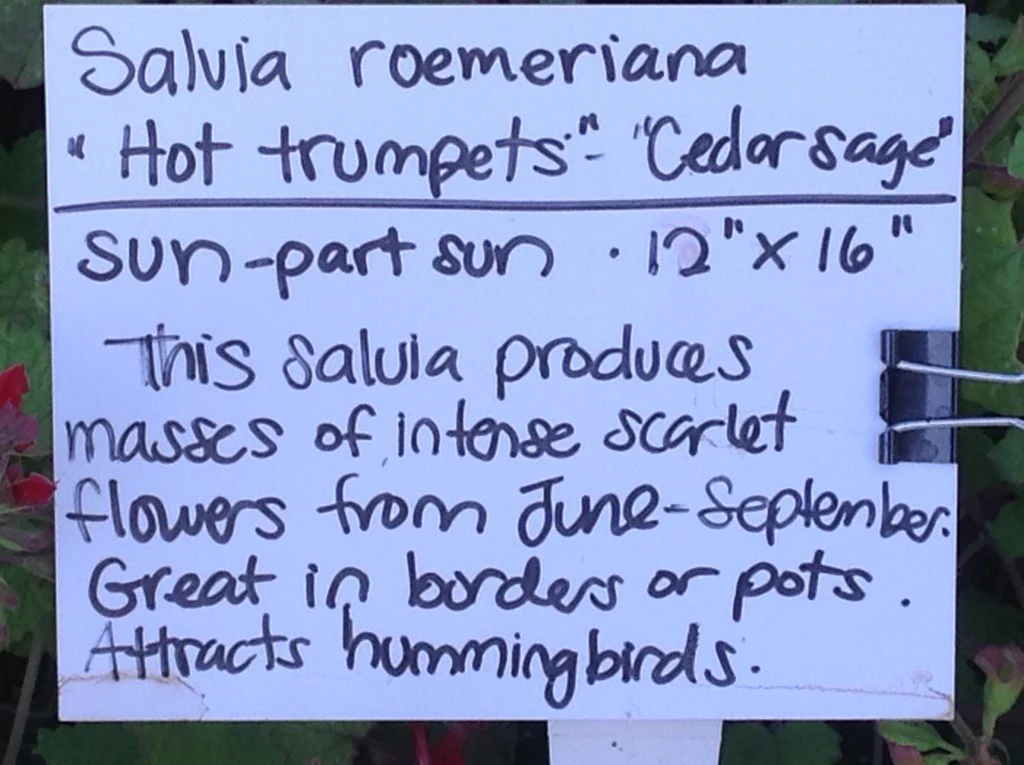 Salvia roemeriana
"Hot trumpets"- "Cedar sage"
sun-part sun · 12" x 16"
This salvia produces
masses of intense scarlet
flowers from June-September.
Great in borders or pots.
Attracts hummingbirds.